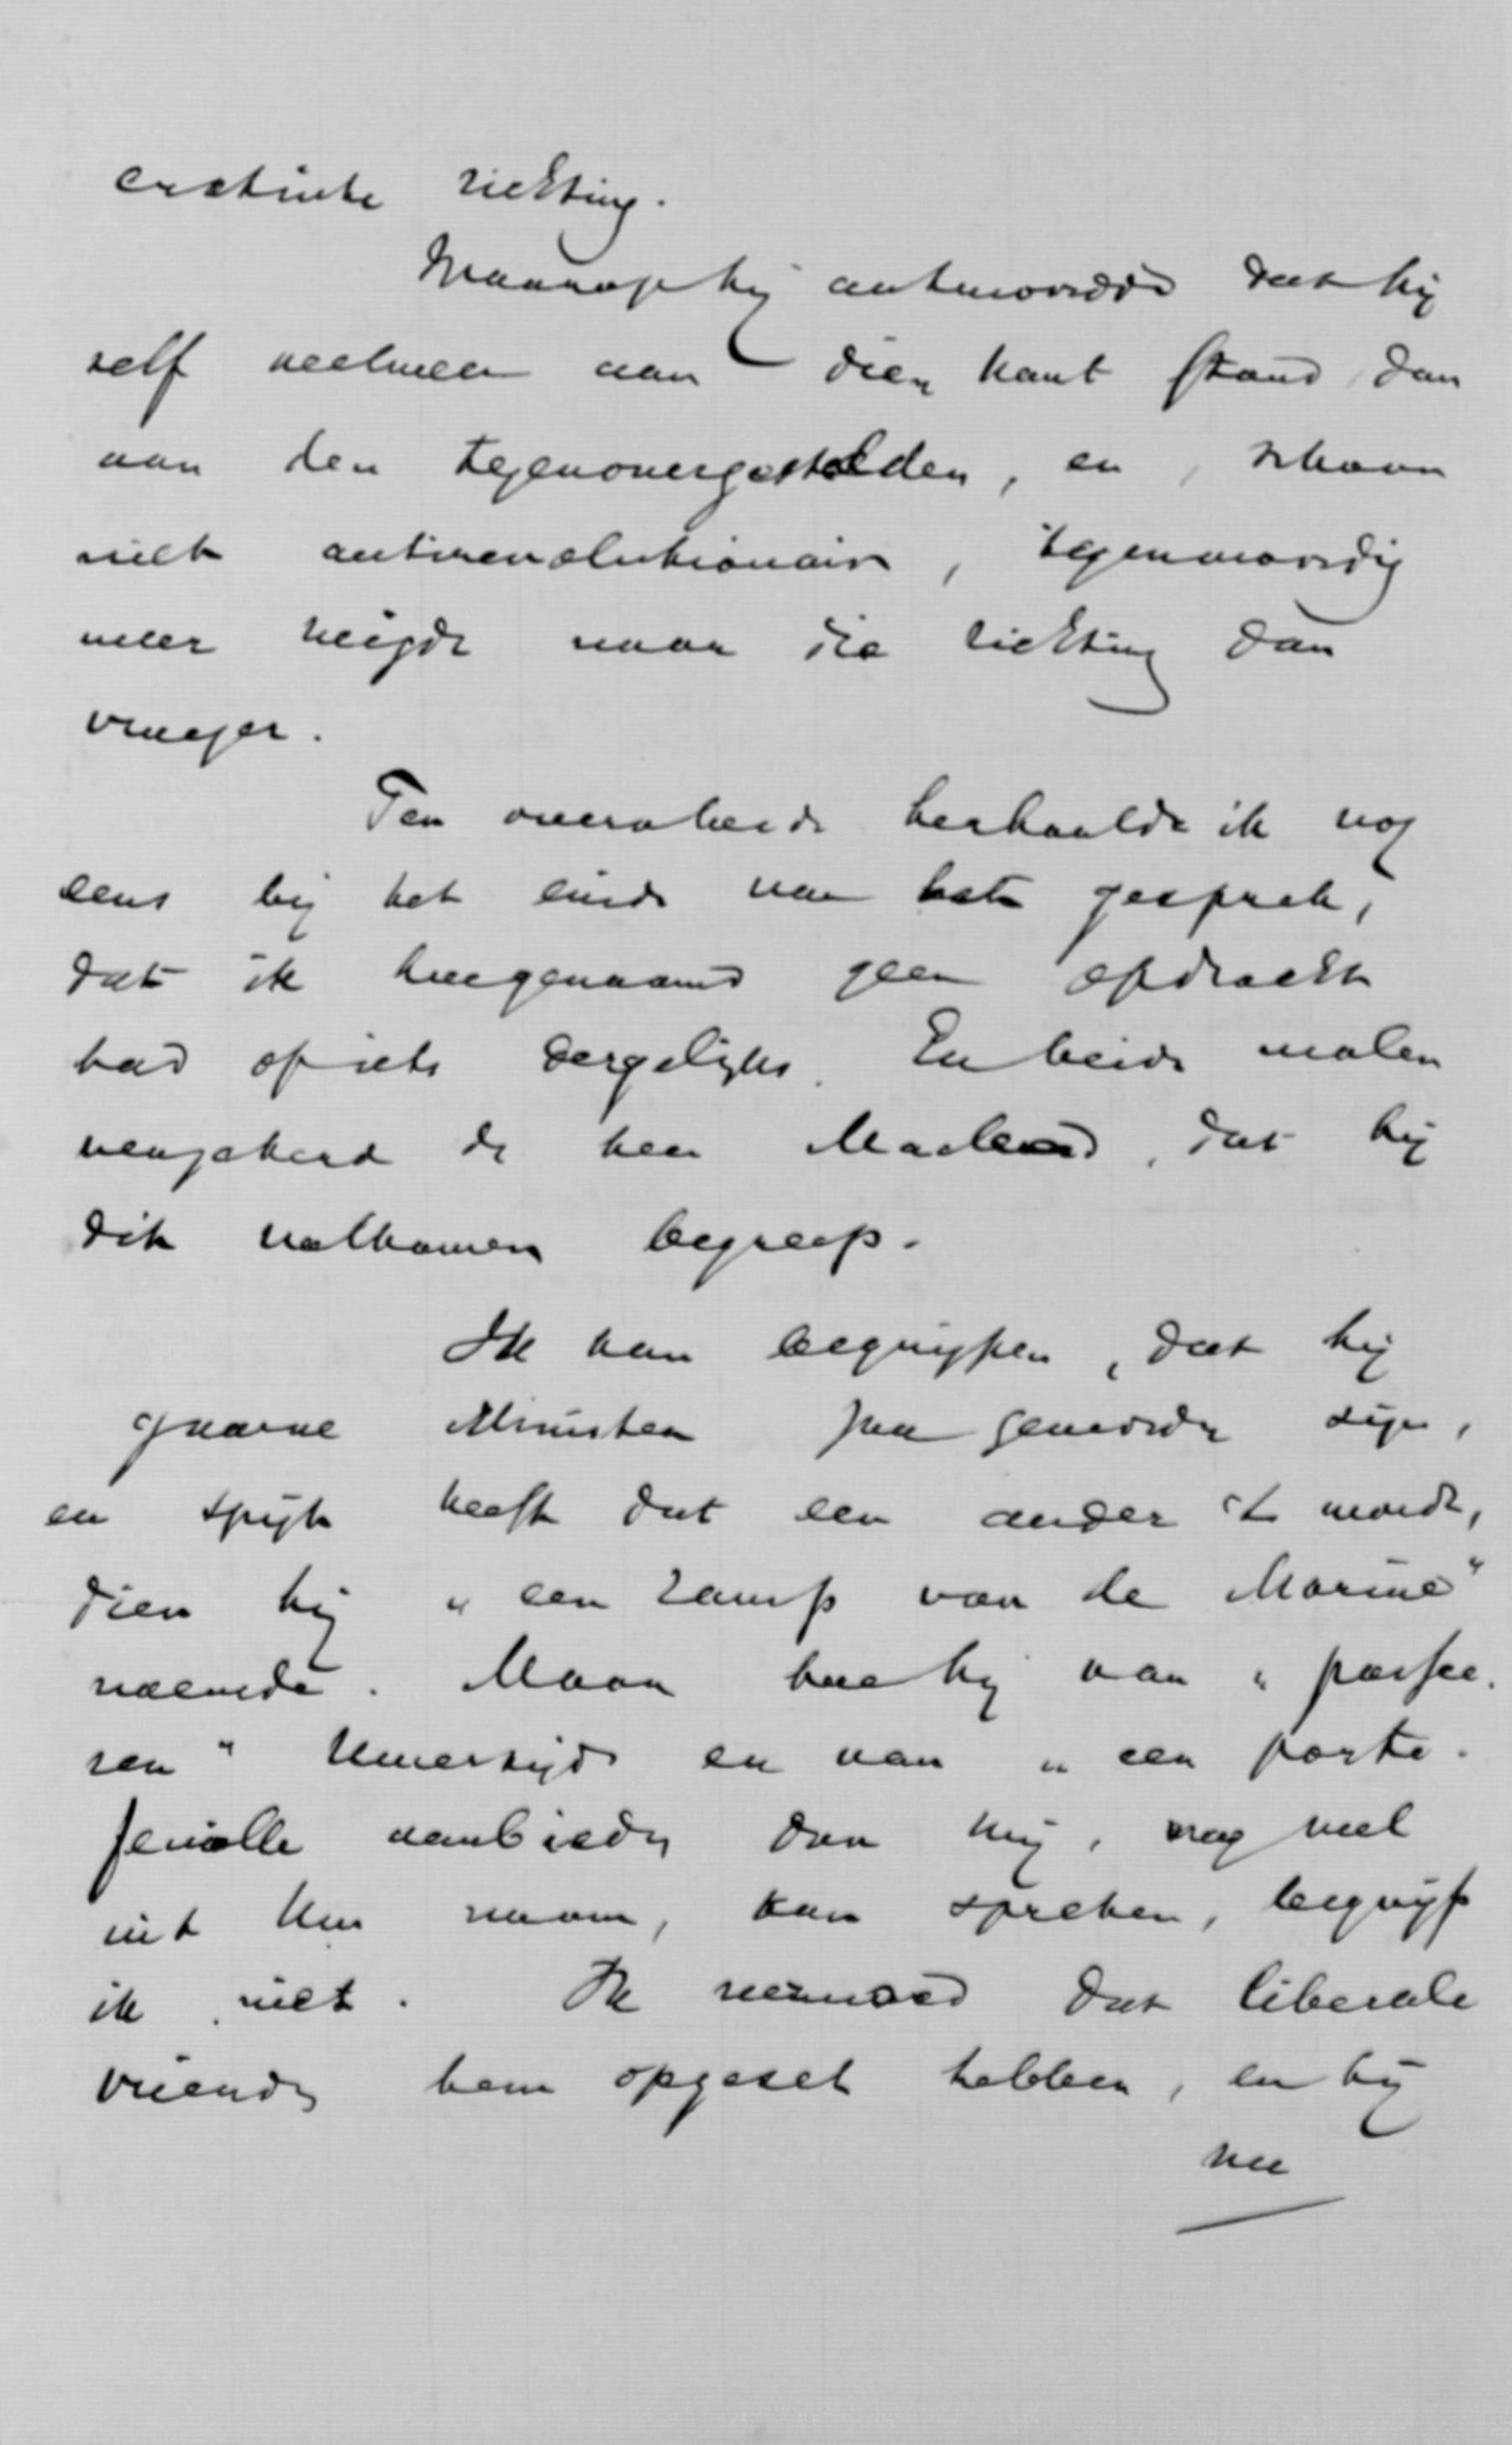 richting.
Waarop hij antwoordde dat hij
zelf veelmeer aan dien kant stond dan
aan den tegenovergestelden, en, schoon
niet antirevolutionair, tegenwoordig
meer neigde naar die richting dan
vroeger.
Ten overvloede herhaalde ik nog
eens bij het einde van het gesprek,
dat ik hoegenaamd geen opdracht
had of iets dergelijks. En beide malen
verzekerde de heer Macleod, dat hij
dit volkomen begreep.
Ik kan begrijpen, dat hij
gaarne Minister zou geworden zijn,
en spijt heeft dat een ander 't wordt,
dien hij "een ramp van de Marine"
noemde. Maar hoe hij van "passee-
ren" Uwerzijds en van "een porte-
feuille aanbieden door mij, nog wel
uit Uw naam, kan spreken, begrijp
ik niet. Ik vermoed dat liberale
vrienden hem opgezet hebben, en hij
nu